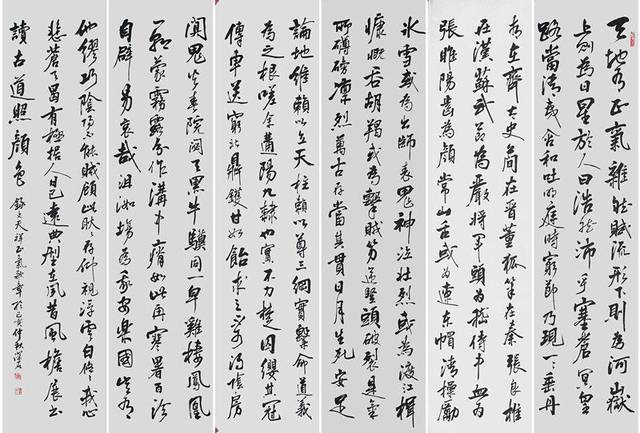 天地有正氣雜然賦流形下則為河嶽
上則為日星於人曰浩然沛乎塞蒼冥皇
路當清夷含和吐明庭時窮節乃現一一垂丹
青在齊太史簡在晉董狐筆在秦張良椎
在漢蘇武節為嚴將軍頭為嵇侍中血為
張睢陽齒為顏常山舌或為遼東帽清操厲
冰雪或為出師表鬼神泣壯烈或為渡江楫
慷慨吞胡羯或為擊賊笏逆豎頭破裂是氣
所磅礴凜烈萬古存當其貫日月生死安足
論地維賴以立天柱賴以尊三綱實繫命道義
為之根嗟余遘陽九隸也實不力楚囚纓其冠
傳車送窮北鼎鑊甘如飴求之不可得陰房
闃鬼火春院閟天黑牛驥同一皁雞棲鳳凰
食一朝蒙霧露分作溝中瘠如此再寒暑百沴
自辟易哀哉沮洳場為我安樂國豈有
他繆巧陰陽不能賊顧此耿耿存仰視浮雲白悠悠我心
悲蒼天曷有極哲人日已遠典型在夙昔風檐展書
讀古道照顏色 錄文天祥正氣歌 於己亥仲秋